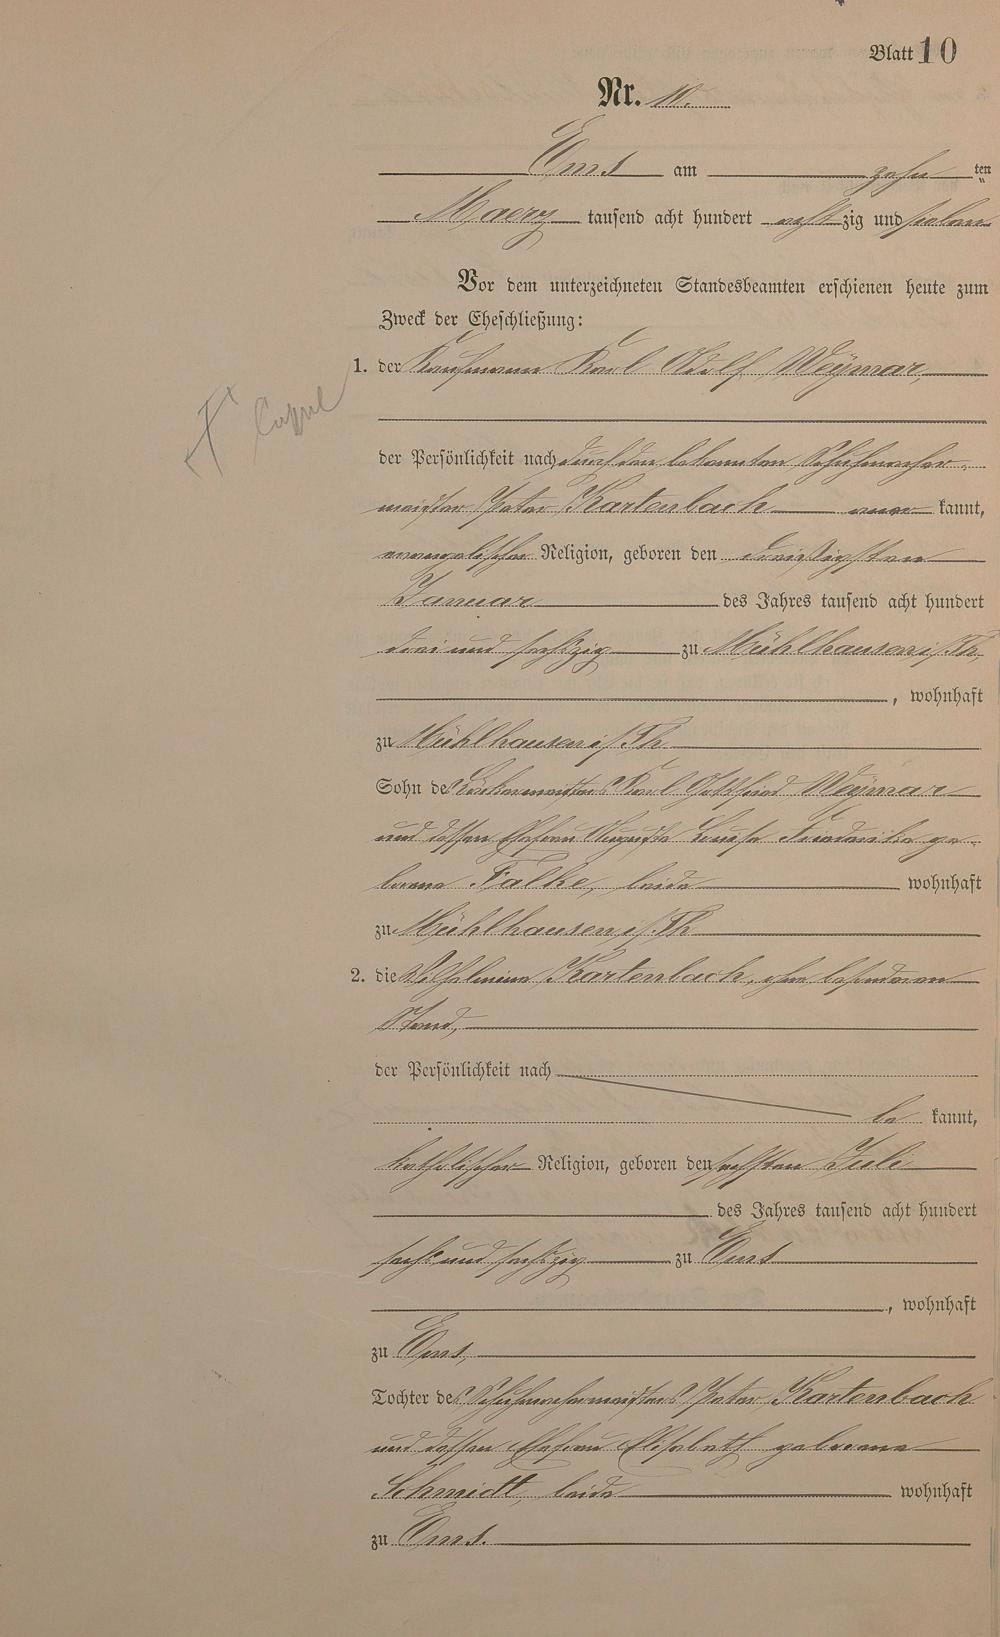 Blatt 10
Nr. 10.
Ems am zehn ten
Maerz tausend acht hundert acht zig und sieben
Vor dem unterzeichneten Standesbeamten erschienen heute zum
Zweck der Eheschließung:
1. der Kaufmann Karl Adolf Weÿmar,
der Persönlichkeit nach durch den bekannten Schuhmacher-
meister Peter Kartenbach aner kannt,
evangelischer Religion, geboren den dreißigsten
Januar des Jahres tausend acht hundert
drei und sechszig zu Mühlhausen i/Th.
, wohnhaft
zu Mühlhausen i/Th.
Sohn des Bäckermeisters Karl Gottfried Weÿmar
und dessen Ehefrau Auguste Louise Friederike ge-
borene Falke, beide wohnhaft
zu Mühlhausen i/Th.
2. die Wilhelmine Kartenbach, ohne besonderen
Stand,
der Persönlichkeit nach
be kannt,
katholischer Religion, geboren den sechsten Juli
des Jahres tausend acht hundert
sechs und sechszig zu Ems
, wohnhaft
zu Ems,
Tochter des Schuhmachermeisters Peter Kartenbach
und dessen Ehefrau Elisabeth geborene
Schmidt, beide wohnhaft
zu Ems.